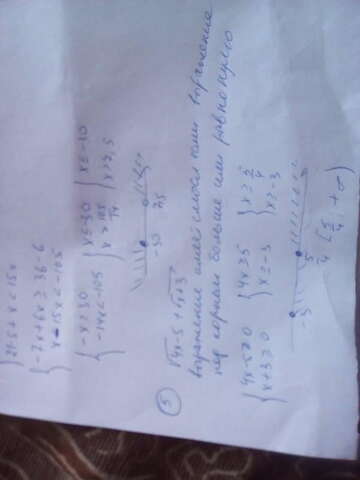 { 21·5 + x < 15x
{ -7x + 6x ≥ 36 - 6
x - 15x < -105
{ -x ≥ 30
{ -14x < -105
{ x ≤ -30
{ x > 105/14
{ x ≤ -30
{ x > 7,5
-30 7,5
5 √4x-5 + √x+3
выражение имеет смысл если выражение
под корнем больше или равно нулю
{ 4x-5≥0
{ x+3≥0
{ 4x ≥ 5
{ x ≥ -3
{ x ≥ 5/4
{ x ≥ -3
-3 5/4 [5/4; +∞)